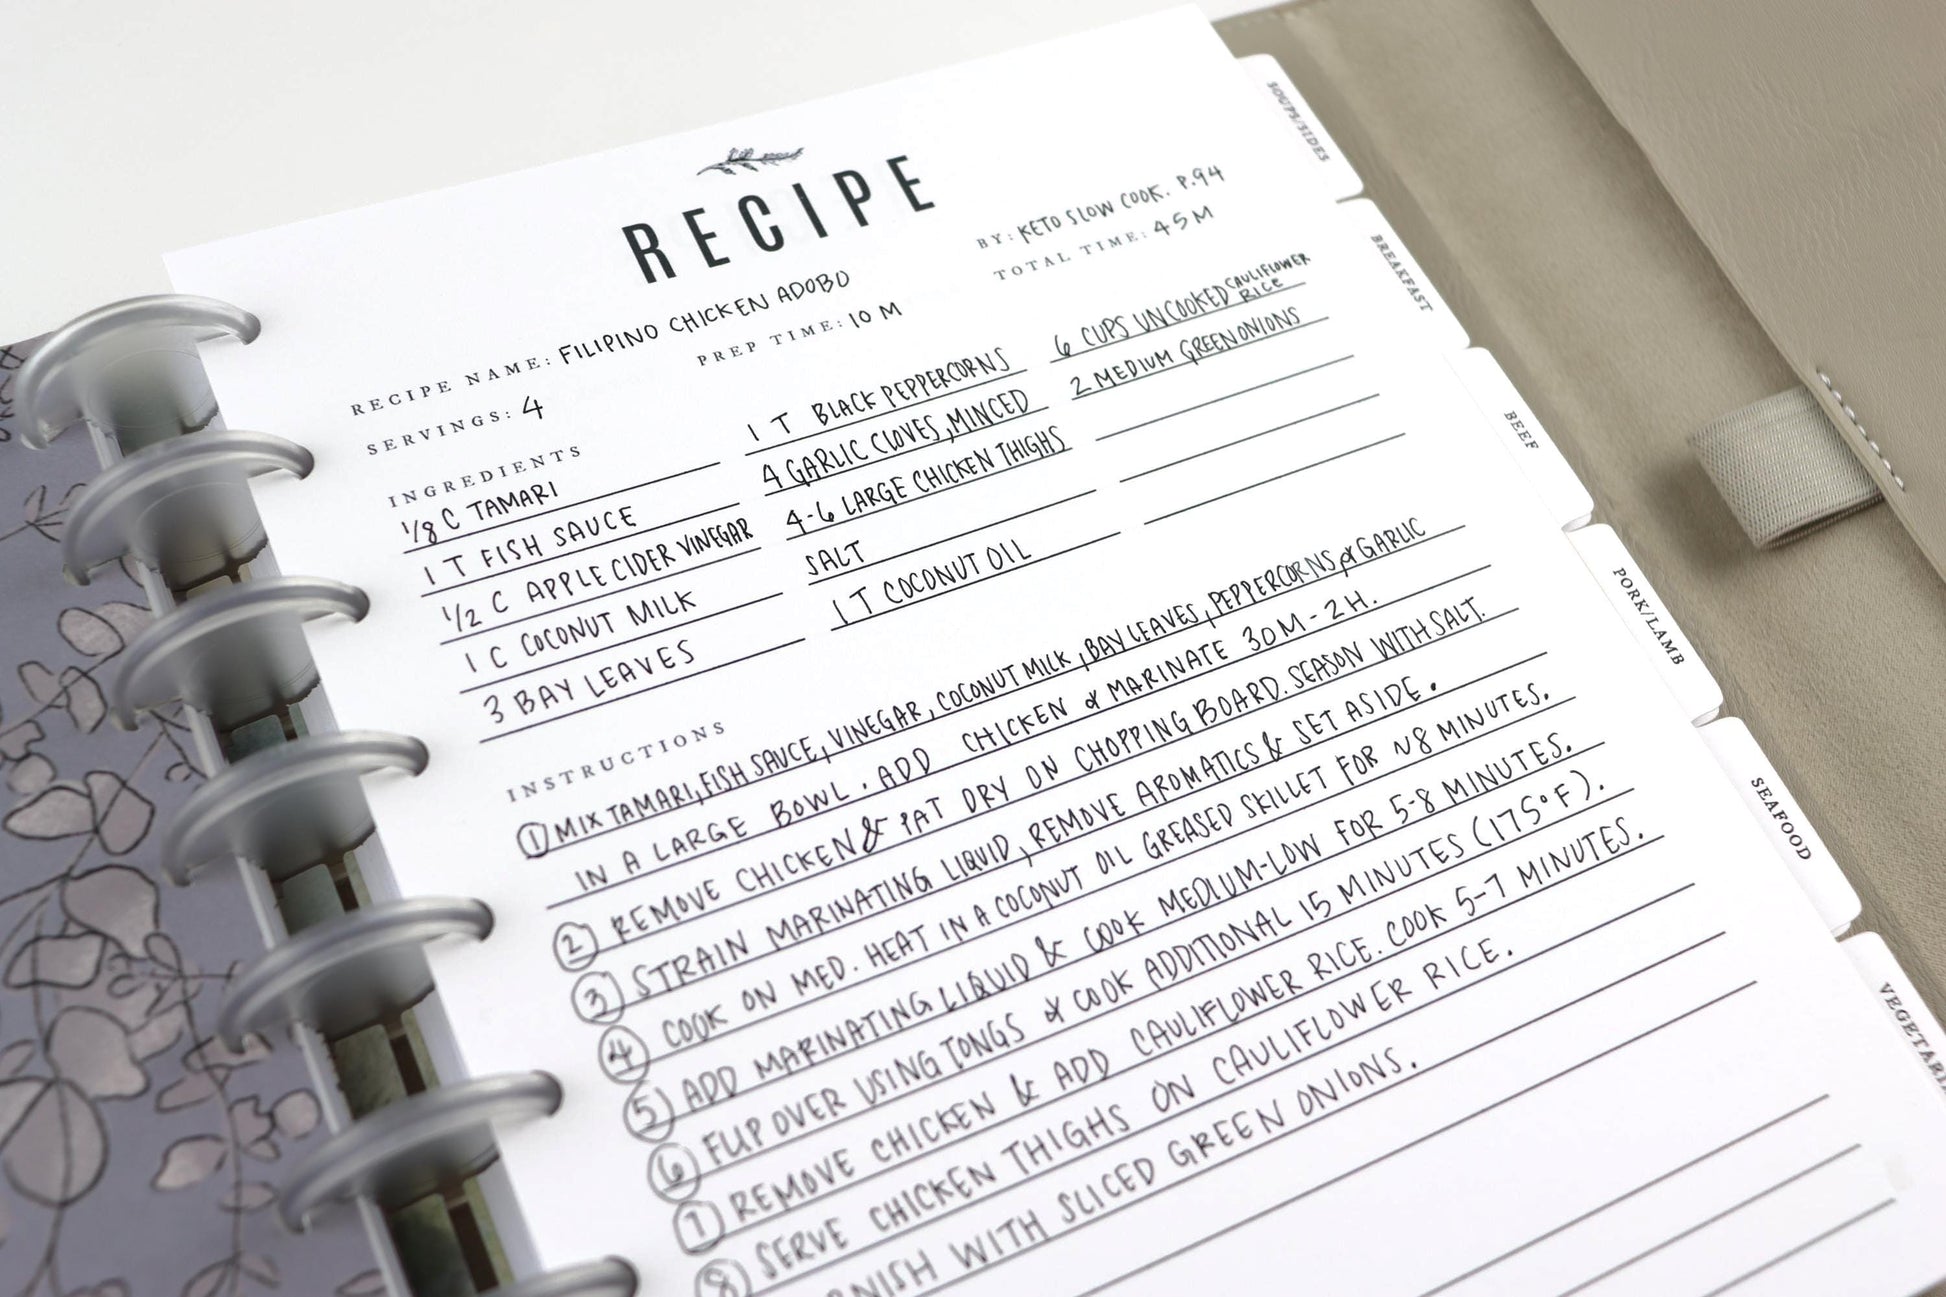 RECIPE
BY: KETO SLOW COOK. P.94
RECIPE NAME: FILIPINO CHICKEN ADOBO
TOTAL TIME: 45 M
SERVINGS: 4
PREP TIME: 10 M
INGREDIENTS
1/8 C TAMARI
1 T FISH SAUCE
1/2 C APPLE CIDER VINEGAR
1 C COCONUT MILK
3 BAY LEAVES
1 T BLACK PEPPERCORNS
4 GARLIC CLOVES, MINCED
4-6 LARGE CHICKEN THIGHS
SALT
1 T COCONUT OIL
6 CUPS UNCOOKED CAULIFLOWER RICE
2 MEDIUM GREEN ONIONS
INSTRUCTIONS
① MIX TAMARI, FISH SAUCE, VINEGAR, COCONUT MILK, BAY LEAVES, PEPPERCORNS, & GARLIC
IN A LARGE BOWL. ADD CHICKEN & MARINATE 30M-2H.
② REMOVE CHICKEN & PAT DRY ON CHOPPING BOARD. SEASON WITH SALT.
③ STRAIN MARINATING LIQUID, REMOVE AROMATICS & SET ASIDE.
④ COOK ON MED. HEAT IN A COCONUT OIL GREASED SKILLET FOR ~8 MINUTES.
⑤ ADD MARINATING LIQUID & COOK MEDIUM-LOW FOR 5-8 MINUTES.
⑥ FLIP OVER USING TONGS & COOK ADDITIONAL 15 MINUTES (175°F).
⑦ REMOVE CHICKEN & ADD CAULIFLOWER RICE. COOK 5-7 MINUTES.
⑧ SERVE CHICKEN THIGHS ON CAULIFLOWER RICE.
WITH SLICED GREEN ONIONS.
SOUPS/SIDES
BREAKFAST
BEEF
PORK/LAMB
SEAFOOD